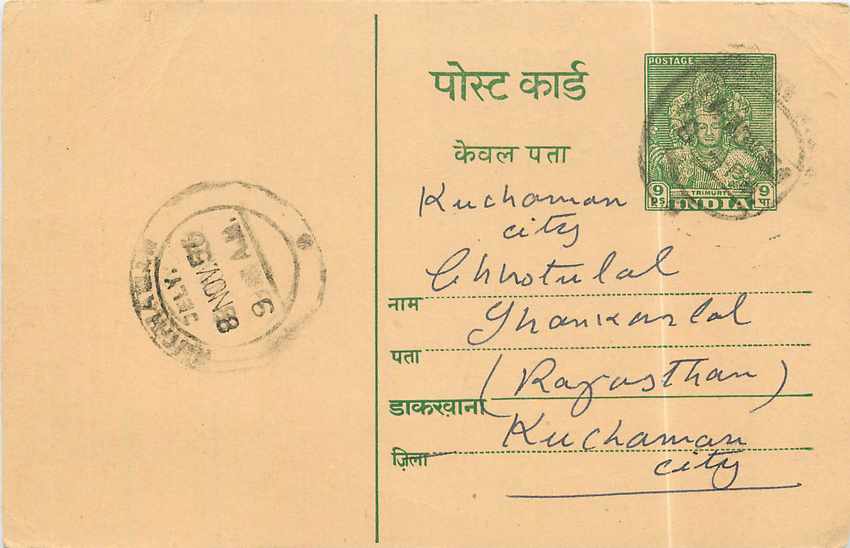 पोस्ट कार्ड
केवल पता
POSTAGE
TRIMURTI
9 PS INDIA 9 पा
Kuchaman
city
Chhotulal
नाम
पता
(Rajasthan)
डाकखाना
Kuchaman
ज़िला
city
DELY.
8 NOV. 56
9 A.M.